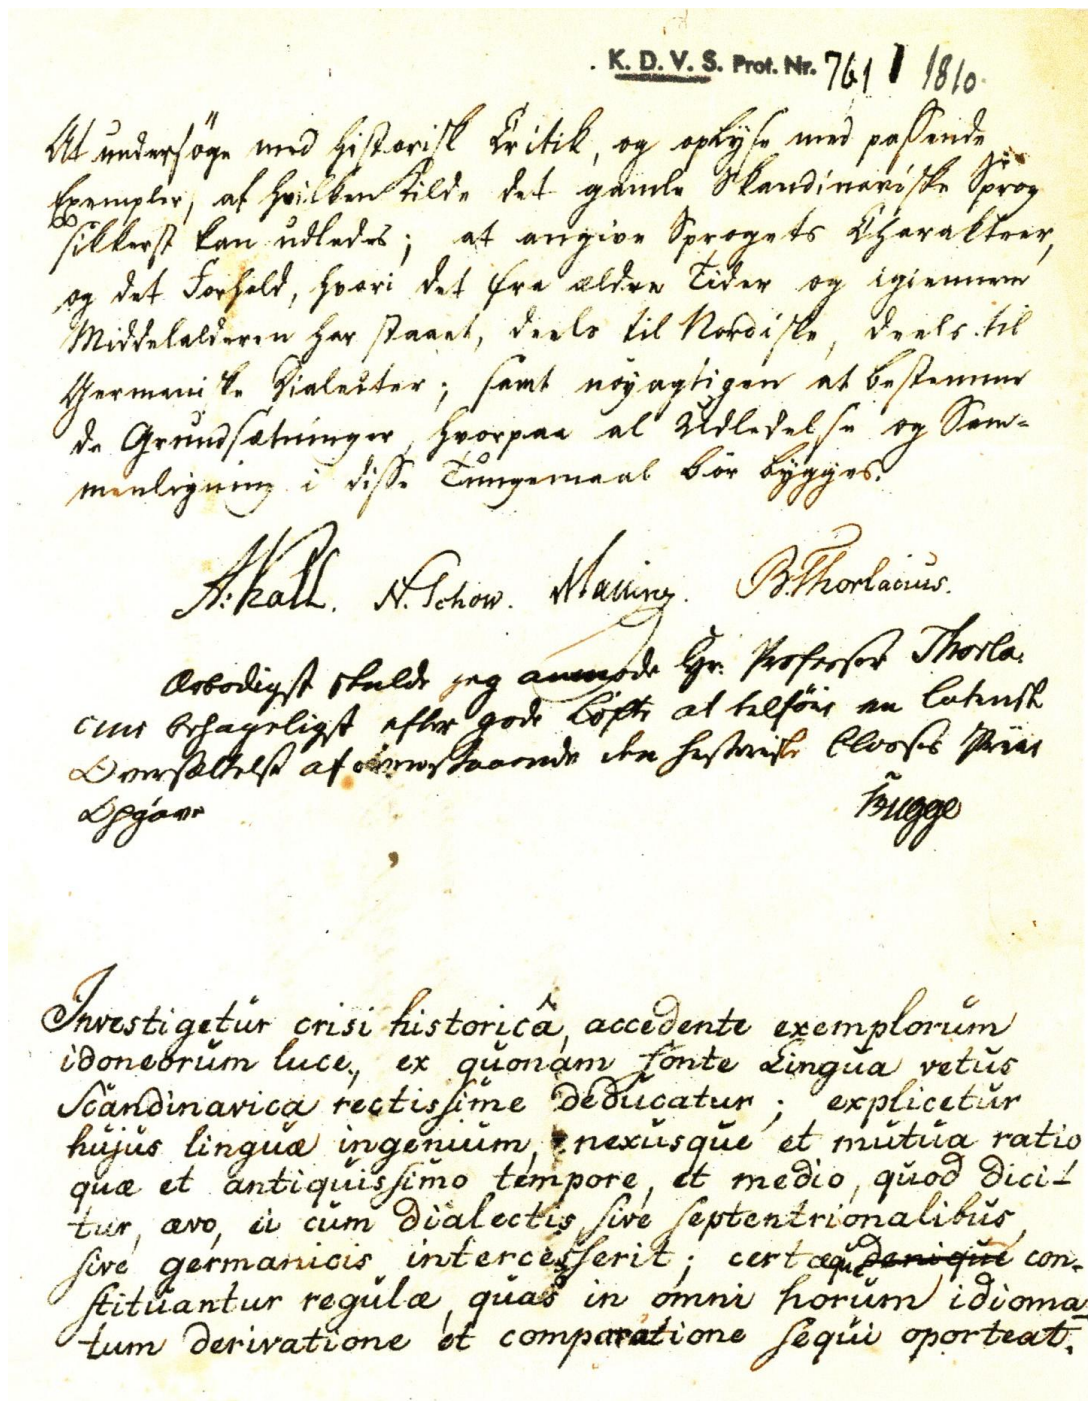 K. D. V. S. Prot. Nr. 761 1810.
At undersöge med historisk Critik, og oplyse med passende
Exempler, af hvilken Kilde det gamle Skandinaviske Sprog
sikkerst kan udledes; at angive Sprogets Charakteer,
og det Forhold, hvori det fra ældre Tider og igiennem
Middelalderen har staaet, deels til Nordiske, deels til
Germaniske Dialecter; samt nöyagtigen at bestemme
de Grundsætninger, hvorpaa al Udledelse og Sam-
menligning i disse Tungemaal bör bygges.
A: Kall. N. Schow. Malling. B. Thorlacius.
Ærbødigst skulde jeg anmode Hr. Professor Thorla-
cius behageligst efter gode Löfte at tilföie en latinsk
Oversættelse af ovenstaaende den historiske Classes Priis
Opgave
Bugge
Investigetur crisi historicâ, accedente exemplorum
idoneorum luce, ex quonam fonte Lingua vetus
Scandinavica rectissime deducatur; explicetur
hujus linguæ ingenium, nexusque et mutua ratio
quæ et antiquissimo tempore, et medio, quod dici-
tur, ævo, ei cum dialectis, sive septentrionalibus,
sive germanicis intercesserit; certæque denique con-
stituantur regulæ, quas in omni horum idioma-
tum derivatione et comparatione sequi oporteat.